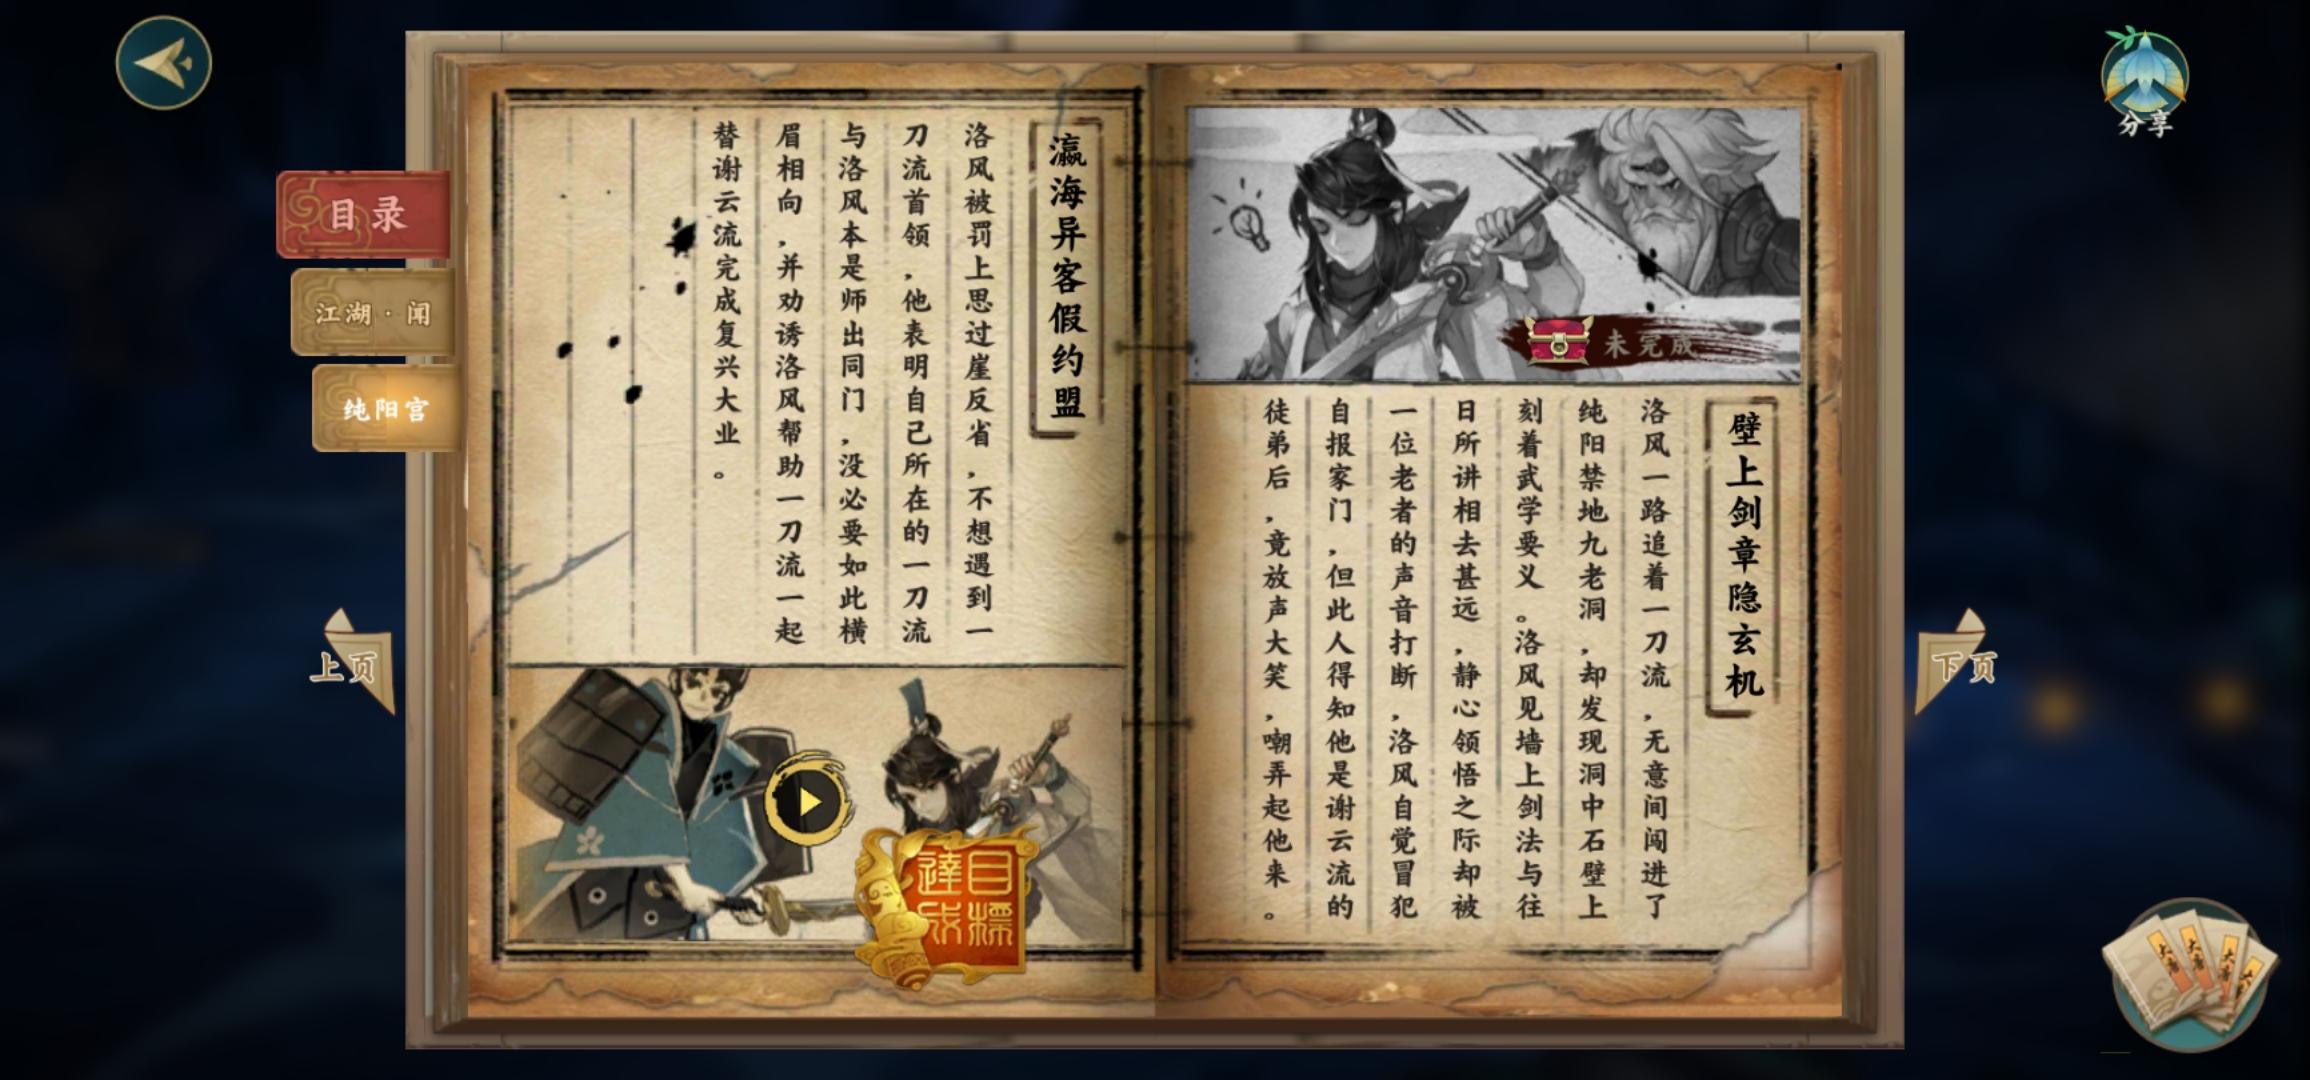 分享
目录
江湖·闻
纯阳宫
上页
瀛海异客假约盟
洛风被罚上思过崖反省，不想遇到一
刀流首领，他表明自己所在的一刀流
与洛风本是师出同门，没必要如此横
眉相向，并劝诱洛风帮助一刀流一起
替谢云流完成复兴大业。
目標
達成
未完成
壁上剑章隐玄机
洛风一路追着一刀流，无意间闯进了
纯阳禁地九老洞，却发现洞中石壁上
刻着武学要义。洛风见墙上剑法与往
日所讲相去甚远，静心领悟之际却被
一位老者的声音打断，洛风自觉冒犯
自报家门，但此人得知他是谢云流的
徒弟后，竟放声大笑，嘲弄起他来。
下页